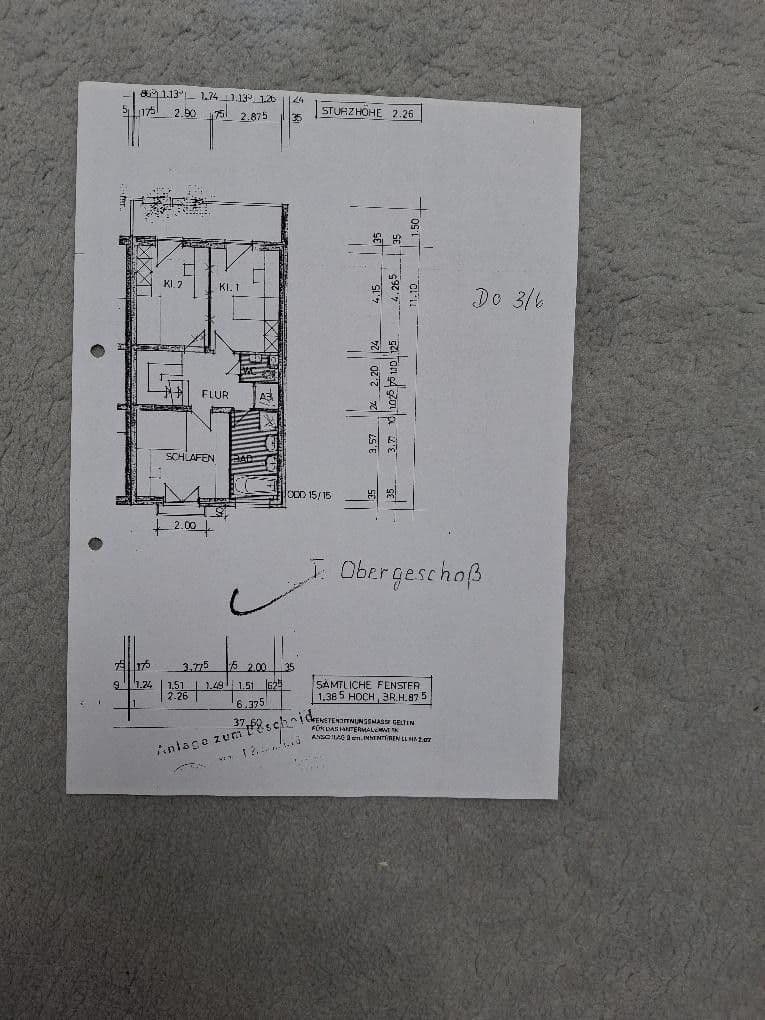 86⁵ 1.13⁵ 1.74 1.13⁵ 1.26 24
5 17⁵ 2.90 7⁵ 2.87⁵ 35
STURZHÖHE 2.26
35 35 1.50
KI.2 KI.1
4.15 4.26⁵ 11.10
DO 3/6
24
2.20 1.10
WC
FLUR
24
SCHLAFEN BAD
3.57 3.71
35 35
ODD 15/15
2.00 50
I. Obergeschoß
7⁵ 17⁵ 3.77⁵ 7⁵ 2.00 35
9 1.24 1.51 1.49 1.51 62⁵
2.26 6.37⁵
37.60
SÄMTLICHE FENSTER
1.38⁵ HOCH, BR.H. 87⁵
FENSTERÖFFNUNGSMASSE GELTEN
FÜR DAS HINTERMAUERWERK
Anlage zum Bescheid